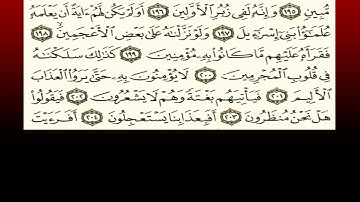 مُّبِينٍ ١٩٥ وَإِنَّهُۥ لَفِى زُبُرِ ٱلْأَوَّلِينَ ١٩٦ أَوَلَمْ يَكُن لَّهُمْ ءَايَةً أَن يَعْلَمَهُۥ
عُلَمَٰٓؤُا۟ بَنِىٓ إِسْرَٰٓءِيلَ ١٩٧ وَلَوْ نَزَّلْنَٰهُ عَلَىٰ بَعْضِ ٱلْأَعْجَمِينَ ١٩٨
فَقَرَأَهُۥ عَلَيْهِم مَّا كَانُوا۟ بِهِۦ مُؤْمِنِينَ ١٩٩ كَذَٰلِكَ سَلَكْنَٰهُ
فِى قُلُوبِ ٱلْمُجْرِمِينَ ٢٠٠ لَا يُؤْمِنُونَ بِهِۦ حَتَّىٰ يَرَوُا۟ ٱلْعَذَابَ
ٱلْأَلِيمَ ٢٠١ فَيَأْتِيَهُم بَغْتَةً وَهُمْ لَا يَشْعُرُونَ ٢٠٢ فَيَقُولُوا۟
هَلْ نَحْنُ مُنظَرُونَ ٢٠٣ أَفَبِعَذَابِنَا يَسْتَعْجِلُونَ ٢٠٤ أَفَرَءَيْتَ